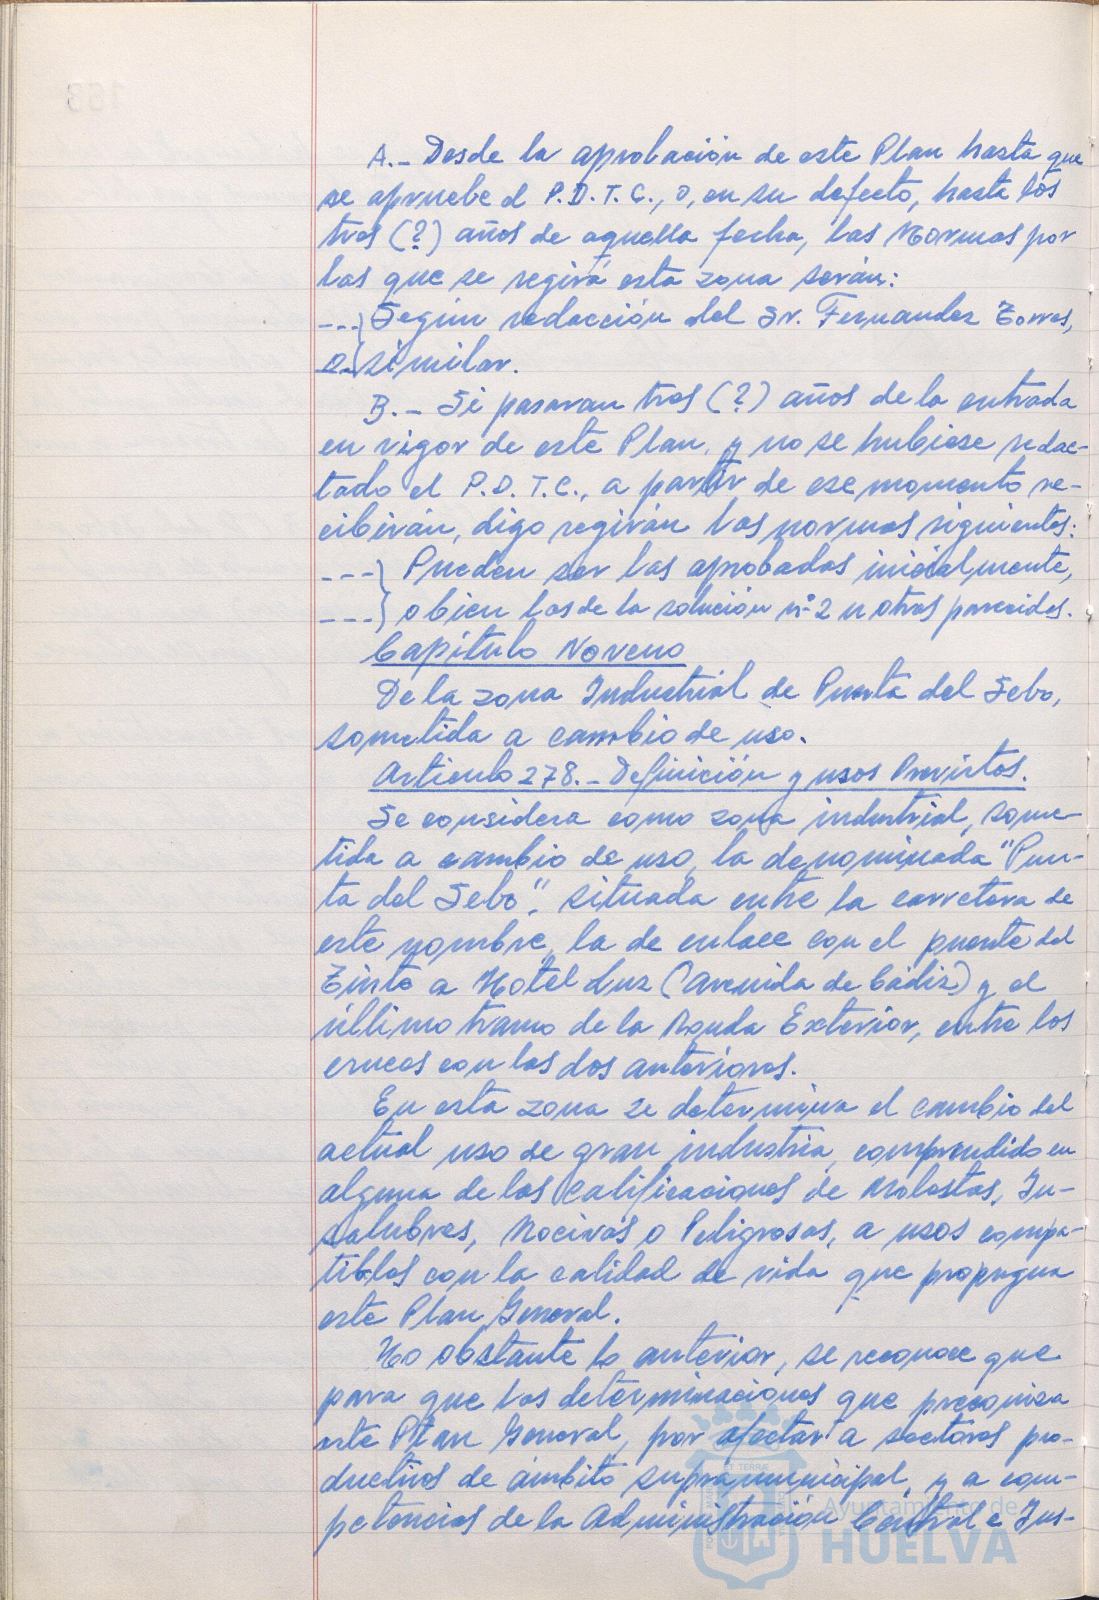 A.- Desde la aprobación de este Plan hasta que
se apruebe el P.D.T.C., o, en su defecto, hasta los
tres (?) años de aquella fecha, las Normas por
las que se regirá esta zona serán:
---} Según redacción del Sr. Fernandez Torres,
o similar.
B.- Si pasaran tres (?) años de la entrada
en vigor de este Plan, y no se hubiese redac-
tado el P.D.T.C., a partir de ese momento re-
cibirán, digo regirán las normas siguientes:
---} Pueden ser las aprobadas inicialmente,
---} o bien las de la solución nº 2 u otras parecidas.
Capítulo Noveno
De la zona Industrial de Punta del Sebo,
sometida a cambio de uso.
Artículo 278.- Definición y usos Previstos.
Se considera como zona industrial, some-
tida a cambio de uso, la denominada "Pun-
ta del Sebo", situada entre la carretera de
este nombre, la de enlace con el puente del
Tinto a Hotel Luz (Avenida de Cádiz) y el
último tramo de la Ronda Exterior, entre los
cruces con las dos anteriores.
En esta zona se determina el cambio del
actual uso de gran industria, comprendido en
alguna de las calificaciones de Molestas, In-
salubres, Nocivas o Peligrosas, a usos compa-
tibles con la calidad de vida que propugna
este Plan General.
No obstante lo anterior, se reconoce que
para que las determinaciones que preconiza
este Plan General, por afectar a sectores pro-
ductivos de ámbito supramunicipal, y a com-
petencias de la Administración Central e Ins-
Ayuntamiento de
HUELVA